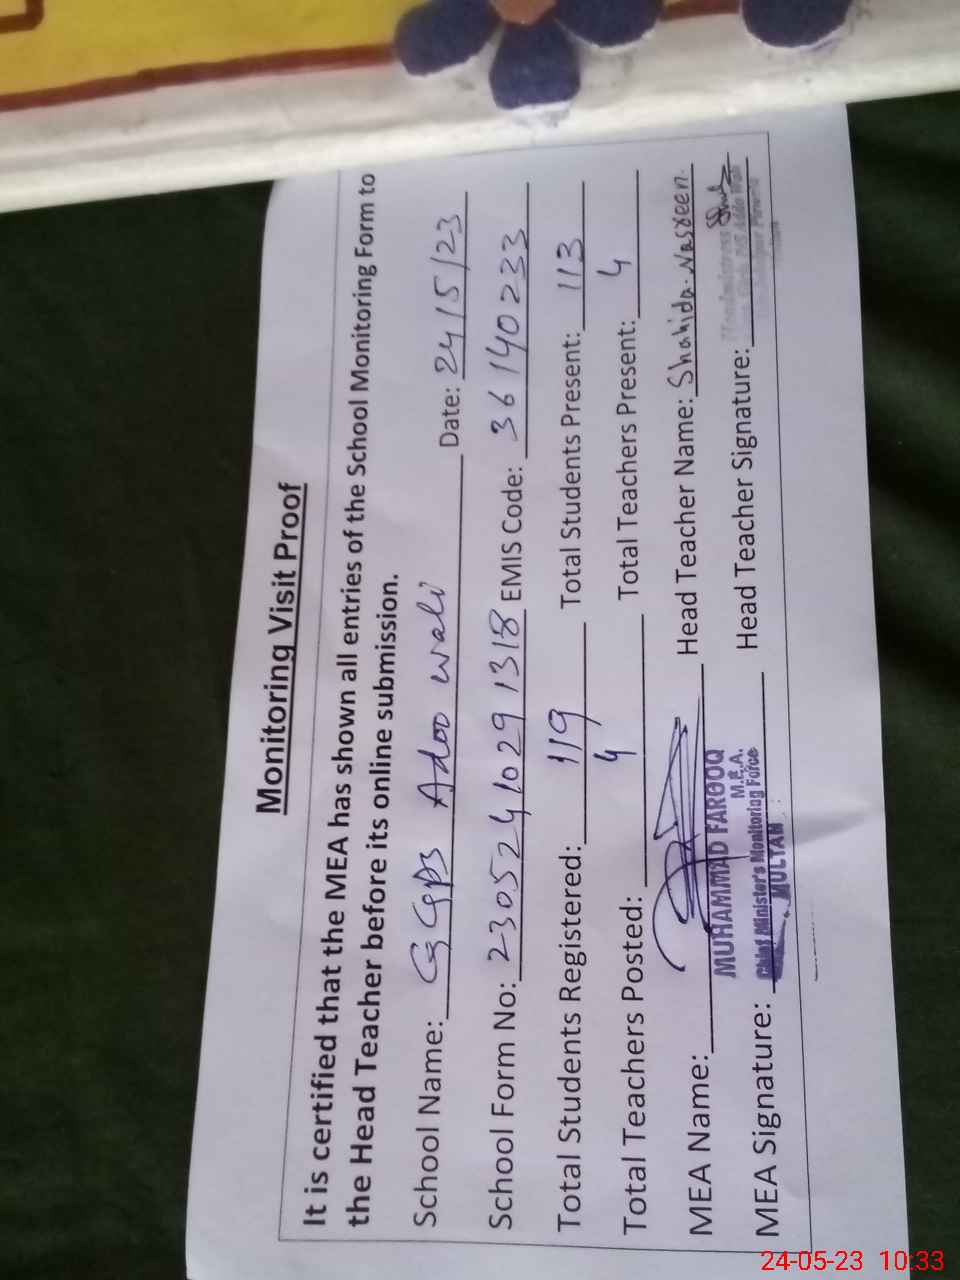 Monitoring Visit Proof
It is certified that the MEA has shown all entries of the School Monitoring Form to
the Head Teacher before its online submission.
School Name: GGPS Adoo wali Date: 24/5/23
School Form No: 23052410291318 EMIS Code: 36140233
Total Students Registered: 119 Total Students Present: 113
Total Teachers Posted: 4 Total Teachers Present: 4
MEA Name: Head Teacher Name: Shahida Nasreen.
MUHAMMAD FAROOQ
M.E.A.
Chief Minister's Monitoring Force
MULTAN
MEA Signature: Head Teacher Signature:
Headmistress
24-05-23 10:33